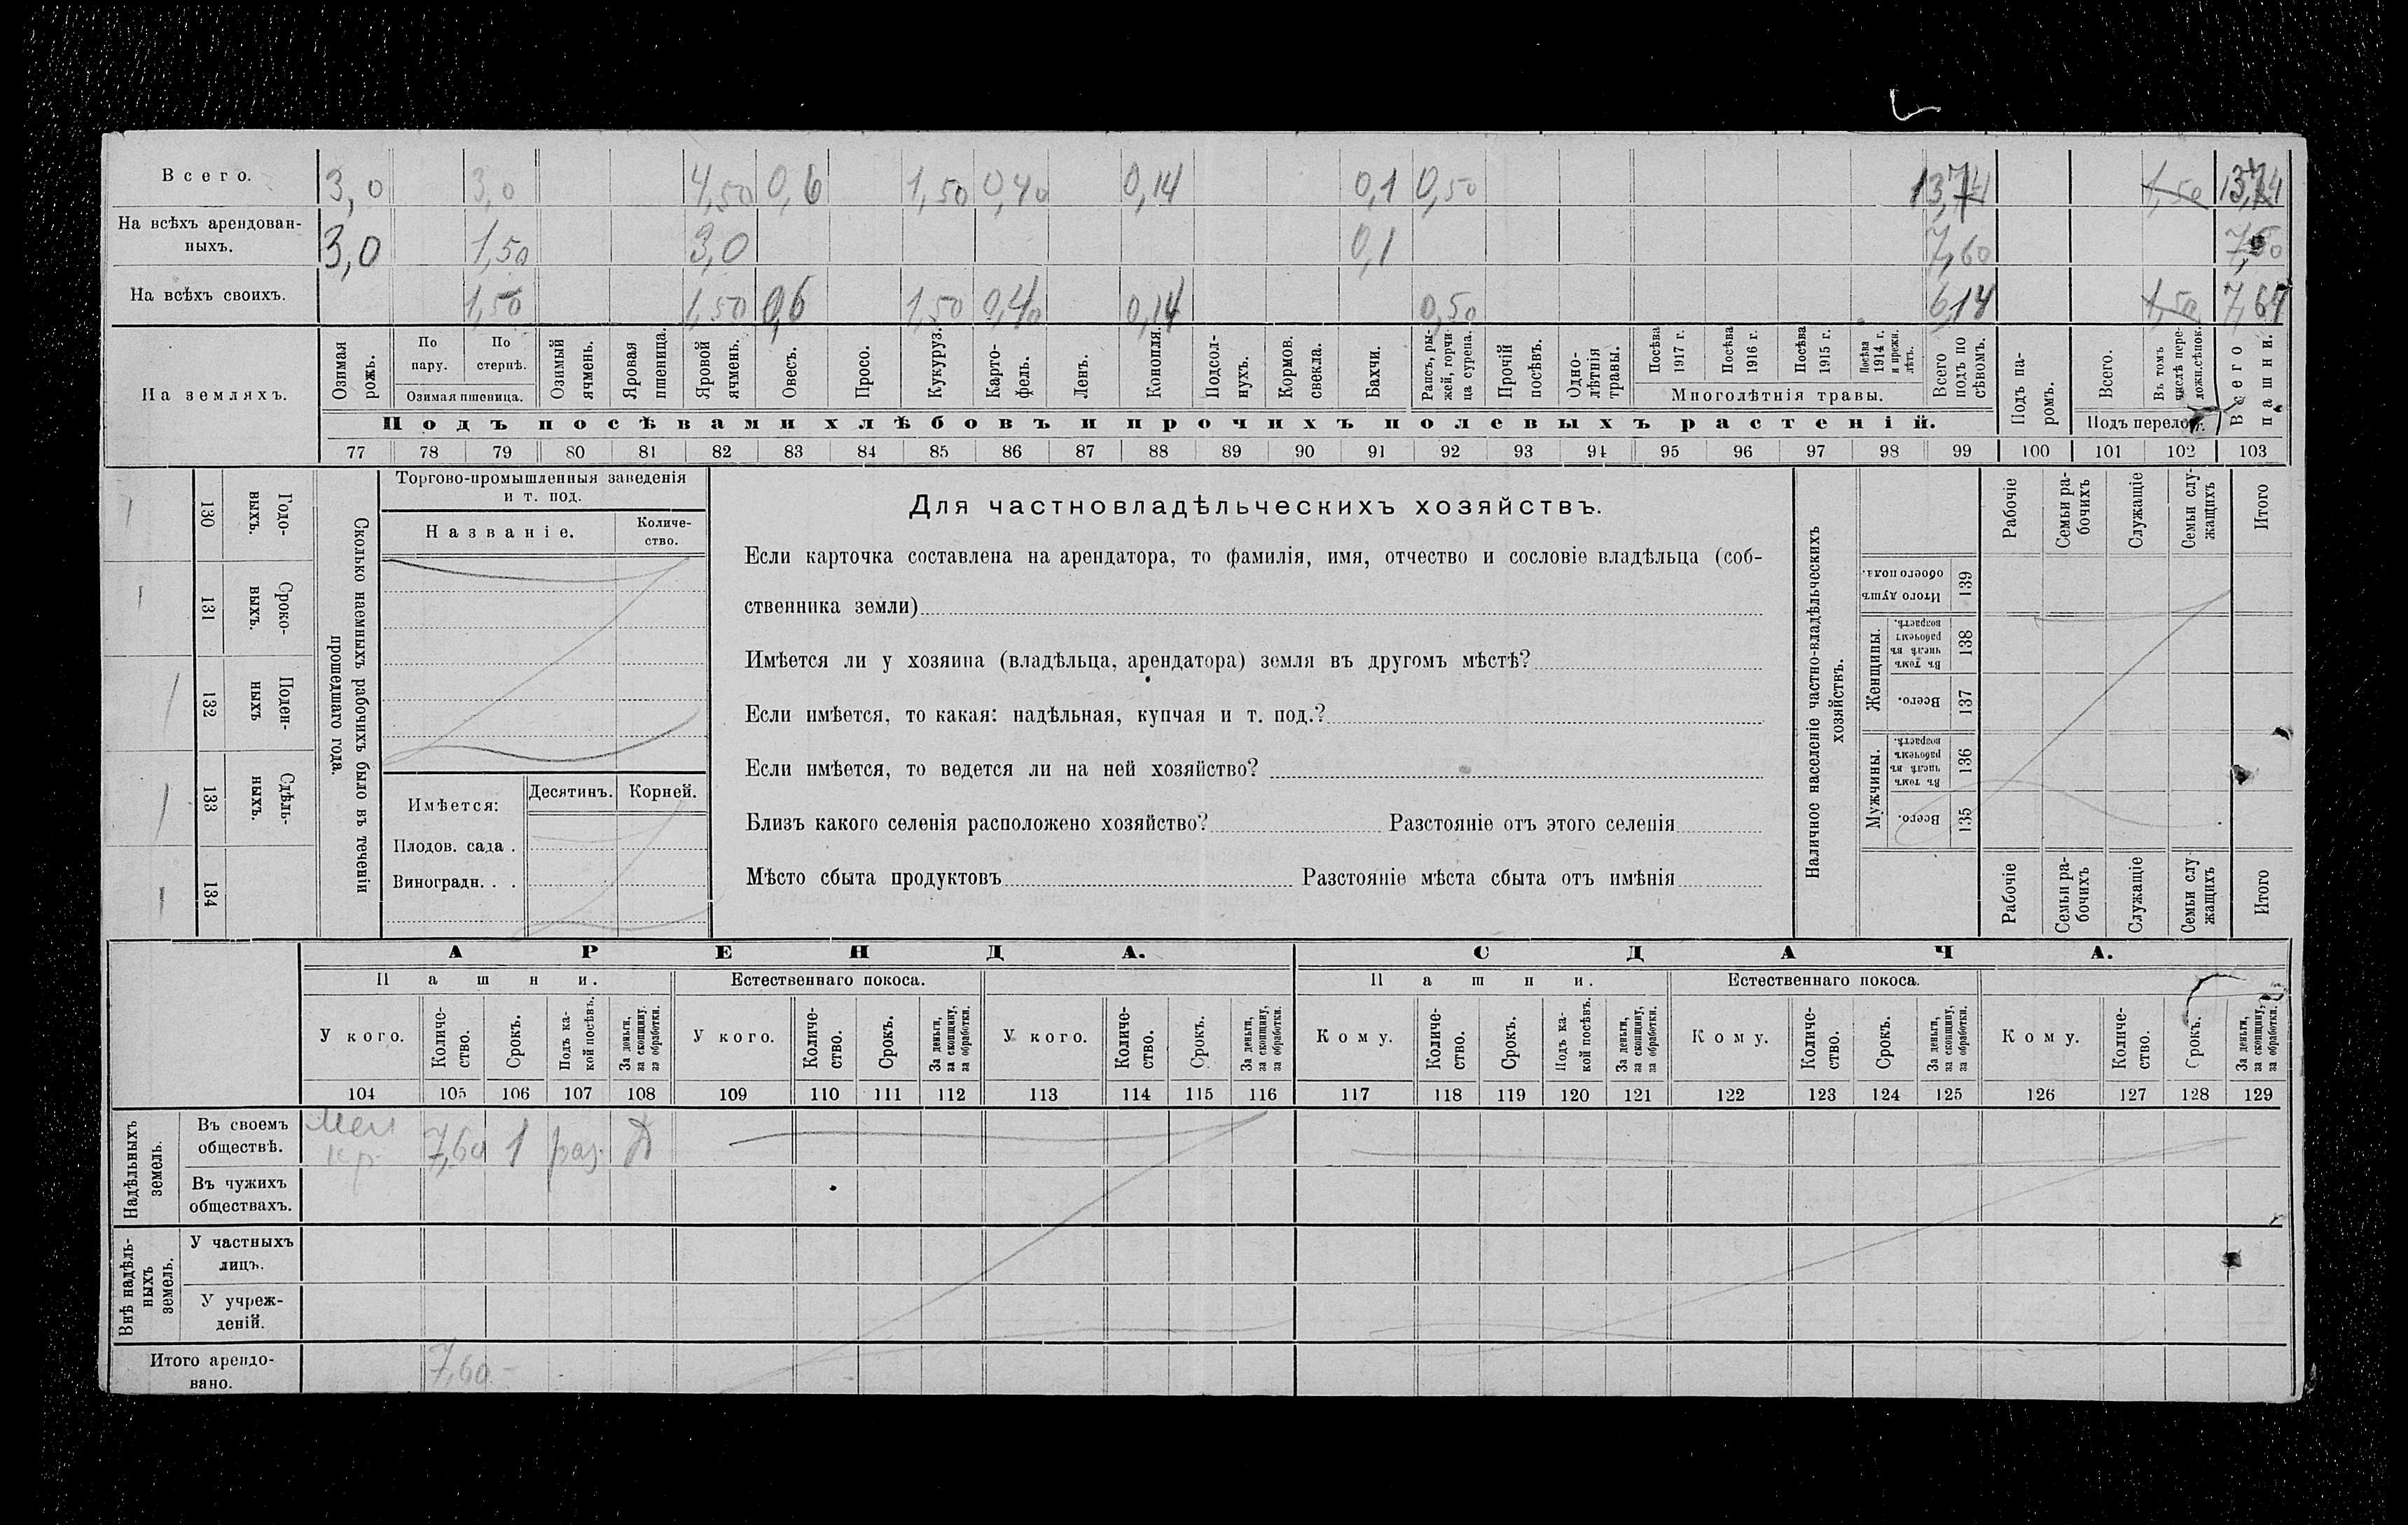 Всего. 3,0 3,0 4,50 0,6 1,50 0,40 0,14 0,1 0,50 13,74 1,50 13,74
На всѣхъ арендован-
ныхъ. 3,0 1,50 3,0 0,1 7,60 7,60
На всѣхъ своихъ. 1,50 1,50 0,6 1,50 0,40 0,14 0,50 6,14 1,50 7,64
На земляхъ.
Озимая рожь.
По пару.
По стернѣ.
Озимая пшеница.
Озимый ячмень.
Яровая пшеница.
Яровой ячмень.
Овесъ.
Просо.
Кукуруз.
Карто-
фель.
Ленъ.
Конопля.
Подсол-
нухъ.
Кормов. свекла.
Бахчи.
Рапсъ, ры-
жей, горчи
ца сурепа.
Прочій посѣвъ.
Одно-
лѣтнія
травы.
Посѣва 1917 г.
Посѣва 1916 г.
Посѣва 1915 г.
Посѣва 1914 г. и прежн. лѣтъ.
Многолѣтнія травы.
Всего подъ по
сѣвомъ.
Подъ па-
ромъ.
Всего.
Въ томъ числѣ пере-
ложн.сѣнок.
Подъ перелог.
Всего пашни.
Подъ посѣвами хлѣбовъ и прочихъ полевыхъ растеній.
77 78 79 80 81 82 83 84 85 86 87 88 89 90 91 92 93 94 95 96 97 98 99 100 101 102 103
Годо-
выхъ.
130
Сроко-
выхъ.
131
Поден-
ныхъ
132
Сдѣль-
ныхъ.
133
134
Сколько наемныхъ рабочихъ было въ теченіи
прошедшаго года.
Торгово-промышленныя заведенія
и т. под.
Названіе.
Количе-
ство.
Имѣется: Десятинъ. Корней.
Плодов. сада .
Виноградн. . .
Для частновладѣльческихъ хозяйствъ.
Если карточка составлена на арендатора, то фамилія, имя, отчество и сословіе владѣльца (соб-
ственника земли)
Имѣется ли у хозяина (владѣльца, арендатора) земля въ другомъ мѣстѣ?
Если имѣется, то какая: надѣльная, купчая и т. под.?
Если имѣется, то ведется ли на ней хозяйство?
Близъ какого селенія расположено хозяйство? Разстояніе отъ этого селенія
Мѣсто сбыта продуктовъ Разстояніе мѣста сбыта отъ имѣнія
Наличное населеніе частно-владѣльческихъ
хозяйствъ.
Рабочіе
Семьи ра-
бочихъ
Служащіе
Семьи слу-
жащихъ
Итого
Итого душъ
обоего пола.
139
Женщины.
Въ томъ числѣ въ рабочемъ возрастѣ.
138
Всего.
137
Мужчины.
Въ томъ числѣ въ рабочемъ возрастѣ.
136
Всего.
135
Рабочіе
Семьи ра-
бочихъ
Служащіе
Семьи слу-
жащихъ
Итого
АРЕНДА. СДАЧА.
Пашни. Естественнаго покоса. Пашни. Естественнаго покоса.
У кого.
Количе-
ство.
Срокъ.
Подъ ка-
кой посѣвъ.
За деньги,
за скопщину,
за обработки.
У кого.
Количе-
ство.
Срокъ.
За деньги,
за скопщину,
за обработки.
У кого.
Количе-
ство.
Срокъ.
За деньги,
за скопщину,
за обработки.
Кому.
Количе-
ство.
Срокъ.
Подъ ка-
кой посѣвъ.
За деньги,
за скопщину,
за обработки.
Кому.
Количе-
ство.
Срокъ.
За деньги,
за скопщину,
за обработки.
Кому.
Количе-
ство.
Срокъ.
За деньги,
за скопщину,
за обработки.
104 105 106 107 108 109 110 111 112 113 114 115 116 117 118 119 120 121 122 123 124 125 126 127 128 129
Надѣльныхъ
земель.
Въ своемъ
обществѣ. кр. 7,60 1 раз. Д
Въ чужихъ
обществахъ.
Внѣ надѣль-
ныхъ
земель.
У частныхъ
лицъ.
У учреж-
деній.
Итого арендо-
вано. 7,60